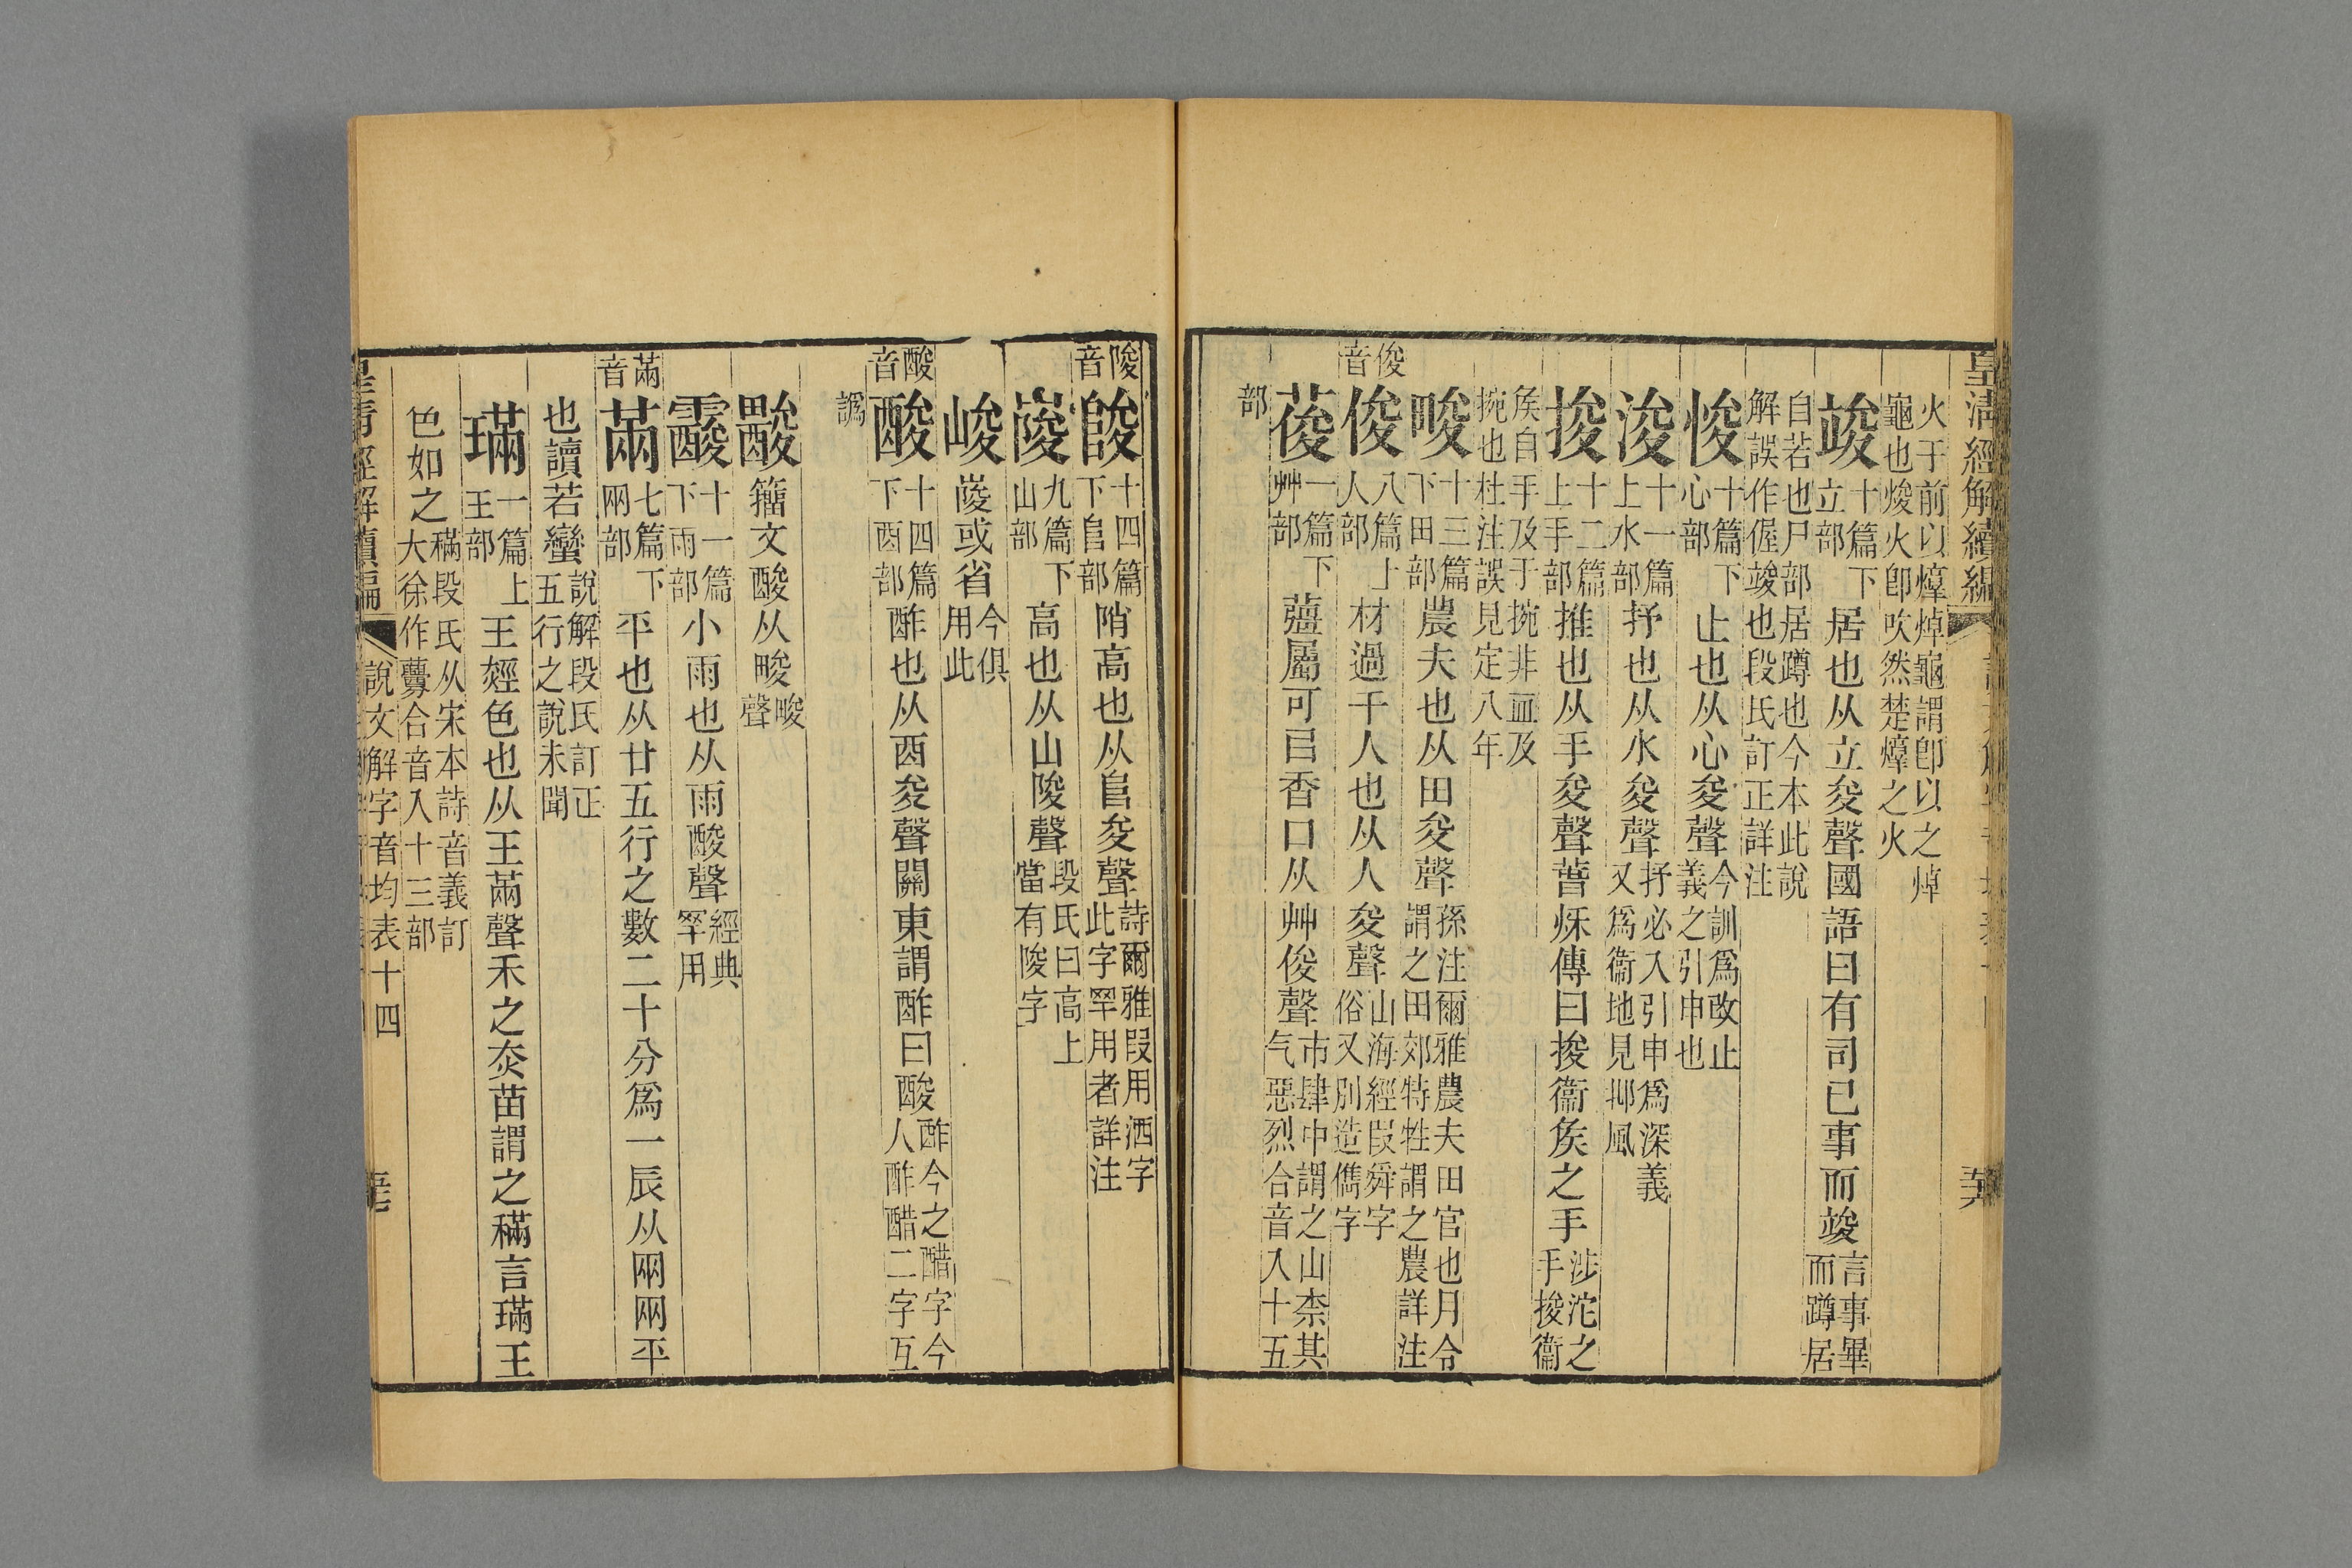 皇清經解續編
火于前以燒焯龜謂卽以之焯
龜也焌火卽吹然楚燒之火
竣十篇下立部居也从立夋聲國語曰有司已事而竣言事畢而蹲居
自若也尸部居蹲也今本此說
解誤作偓竣也段氏訂正詳注
悛十篇下心部止也从心夋聲今訓爲改止義之引申也
浚十一篇上水部抒也从水夋聲抒必入引申爲深義又爲衞地見邶風
捘十二篇上手部推也从手夋聲萅秌傳曰捘衞矦之手涉沱之手捘衞
矦自手及于捥非血及
捥也杜注誤見定八年
畯十三篇下田部農夫也从田夋聲孫注爾雅農夫田官也月令謂之田郊特牲謂之農詳注
俊音
俊八篇上人部材過千人也从人夋聲山海經叚舜字俗又別造儁字
葰一篇下艸部薑屬可㠯香口从艸俊聲市肆中謂之山柰其气惡烈合音入十五
部
陖音
陖十四篇下𨸏部陗高也从𨸏夋聲詩爾雅叚用洒字此字罕用者詳注
㟎九篇下山部高也从山陖聲段氏曰高上當有陖字
峻㟎或省今俱用此
酸音
酸十四篇下酉部酢也从酉夋聲關東謂酢曰酸酢今之醋字今人酢醋二字互
譌
籒文酸从畯畯聲
霰十一篇下雨部小雨也从雨酸聲經典罕用
㒼音
㒼七篇下㒳部平也从廿五行之數二十分爲一辰从㒳㒳平
也讀若蠻說解段氏訂正五行之說未聞
璊一篇上王部王經色也从王㒼聲禾之赤苗謂之䅼言璊王
色如之䅼段氏从宋本詩音義訂大徐作虋合音入十三部
皇清經解續編
說文解字音均表十四